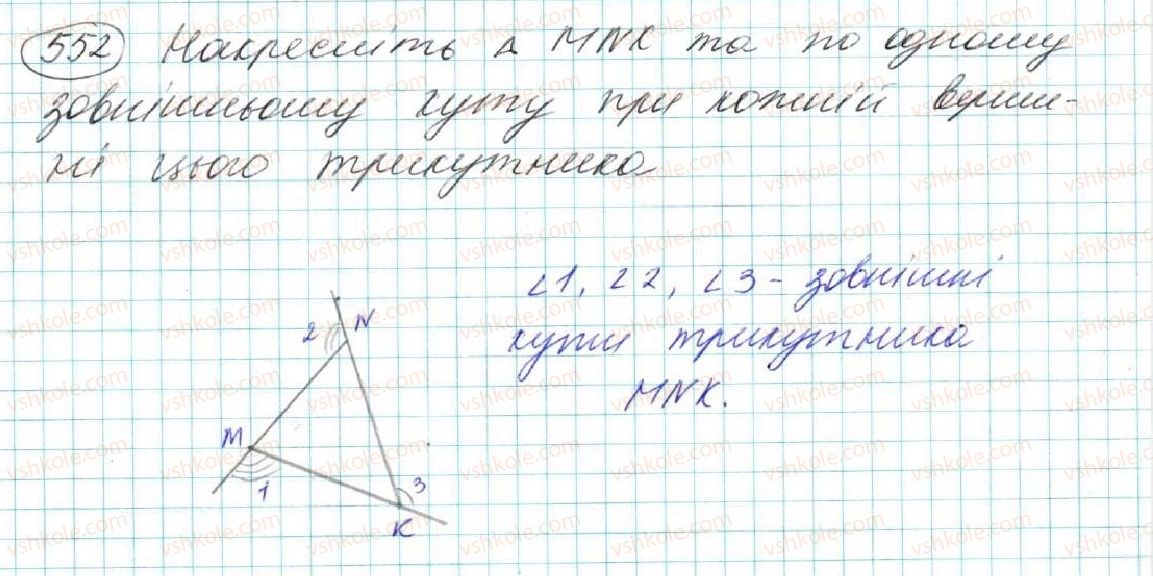 552 Накресліть △ MNK та по одному
зовнішньому куту при кожній верши-
ні цього трикутника
∠1, ∠2, ∠3 - зовнішні
кути трикутника
MNK.
2 N
M
1
3
K